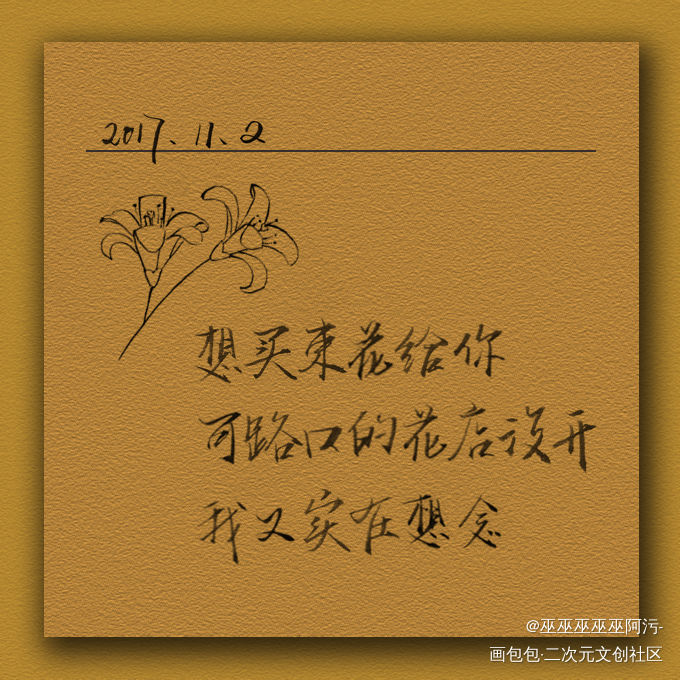 2017、11、2
想买束花给你
可路口的花店没开
我又实在想念
@巫巫巫巫巫阿污-
画包包·二次元文创社区